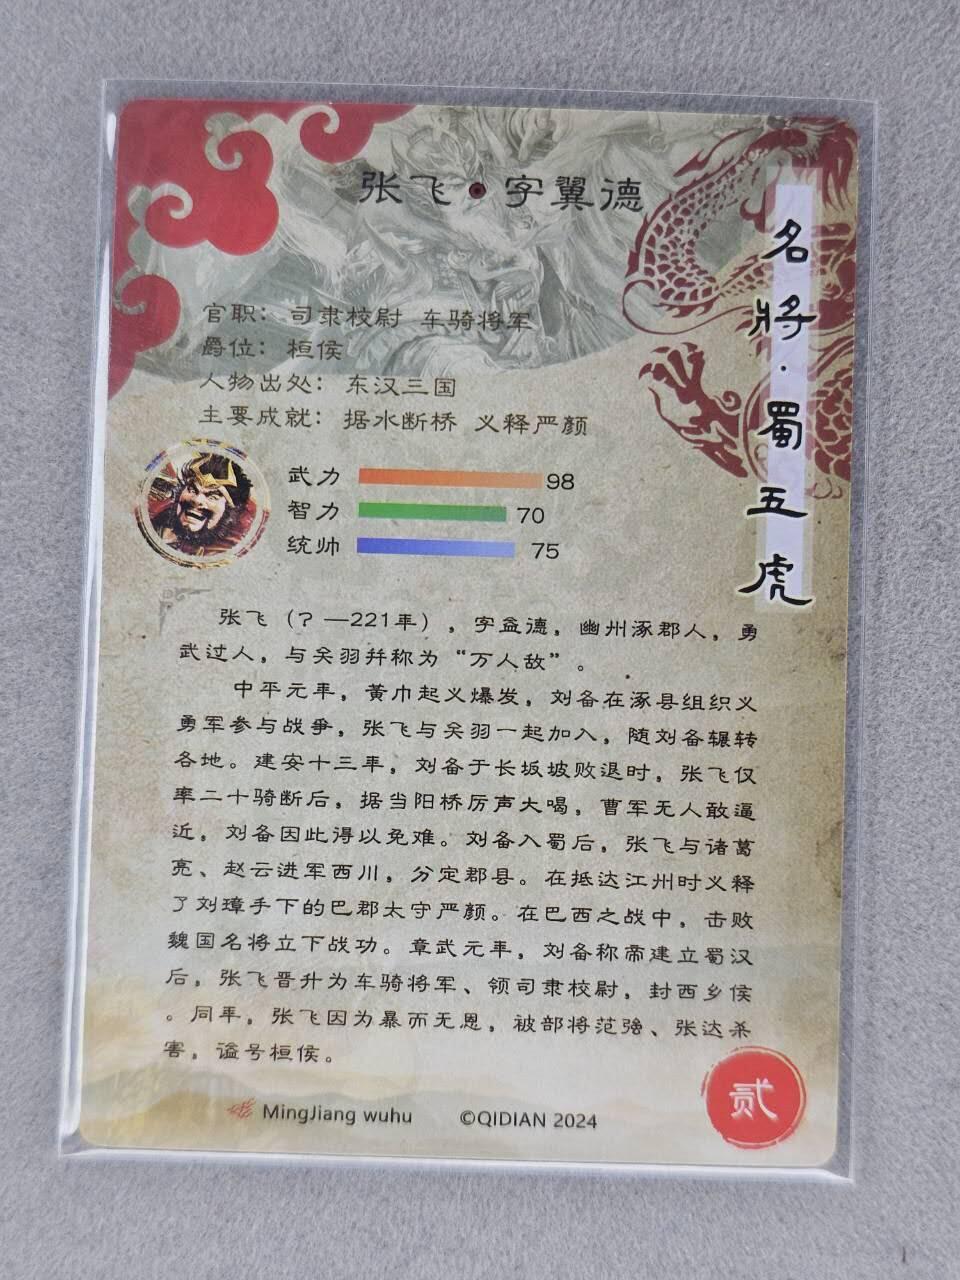 张飞·字翼德
名將·蜀五虎
官职：司隶校尉 车骑将军
爵位：桓侯
人物出处：东汉三国
主要成就：据水断桥 义释严颜
武力 98
智力 70
统帅 75
张飞（？—221年），字益德，幽州涿郡人，勇
武过人，与关羽并称为“万人敌”。
中平元年，黄巾起义爆发，刘备在涿县组织义
勇军参与战争，张飞与关羽一起加入，随刘备辗转
各地。建安十三年，刘备于长坂坡败退时，张飞仅
率二十骑断后，据当阳桥厉声大喝，曹军无人敢逼
近，刘备因此得以免难。刘备入蜀后，张飞与诸葛
亮、赵云进军西川，分定郡县。在抵达江州时义释
了刘璋手下的巴郡太守严颜。在巴西之战中，击败
魏国名将立下战功。章武元年，刘备称帝建立蜀汉
后，张飞晋升为车骑将军、领司隶校尉，封西乡侯
。同年，张飞因为暴而无恩，被部将范强、张达杀
害，谥号桓侯。
MingJiang wuhu ©QIDIAN 2024
贰